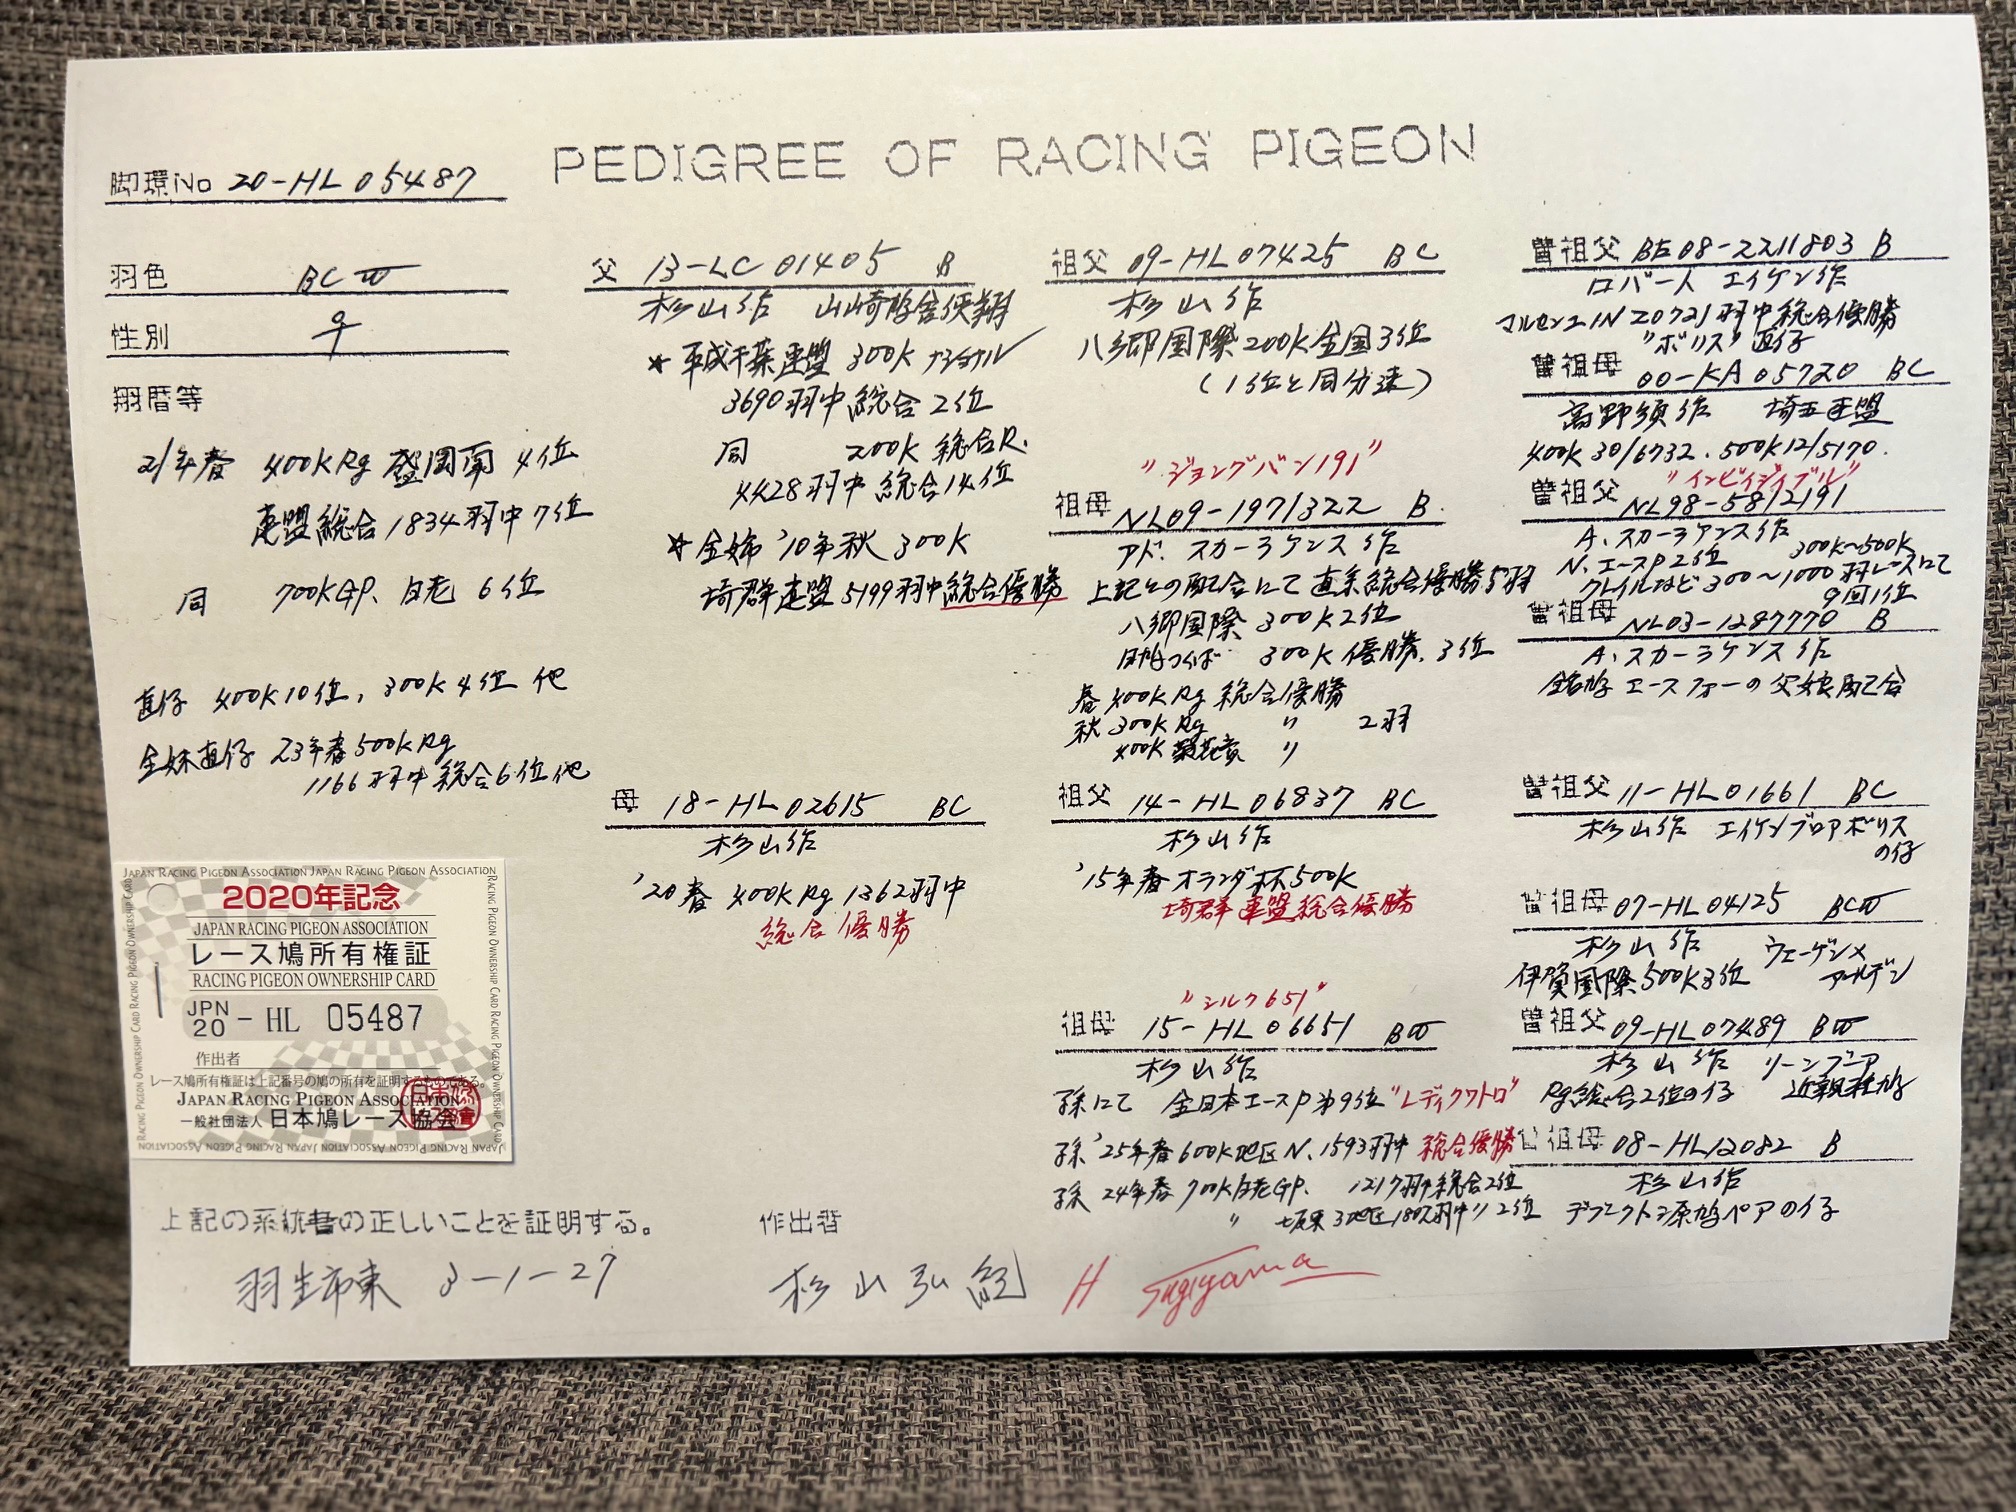 PEDIGREE OF RACING PIGEON
脚環No 20-HL 05487
羽色 BCW
性別 ♀
翔暦等
21年春 400K Rg 盛岡南 4位
連盟総合 1834羽中 7位
同 700K GP. 白老 6位
直仔 400K 10位, 300K 4位 他
全妹直仔 23年春 500K Rg
1166羽中 総合6位 他
JAPAN RACING PIGEON ASSOCIATION JAPAN RACING PIGEON ASSOCIATION
2020年記念
JAPAN RACING PIGEON ASSOCIATION
レース鳩所有権証
RACING PIGEON OWNERSHIP CARD
JPN
20 - HL 05487
作出者
レース鳩所有権証は上記番号の鳩の所有を証明するものである。
JAPAN RACING PIGEON ASSOCIATION
一般社団法人 日本鳩レース協会
父 13-LC 01405 B
杉山作 山崎鳩舎使翔
★平成千葉連盟 300K ナショナル
3690羽中 総合 2位
同 200K 総合R.
4428羽中 総合14位
☆全姉 '10年秋 300K
埼群連盟 5199羽中 総合優勝
母 18-HL 02615 BC
杉山作
'20春 400K Rg 1362羽中
総合優勝
祖父 09-HL 07425 BC
杉山作
八郷国際 200K 全国3位
(1位と同分速)
"ジョングバン191"
祖母 NL09-1971322 B.
アド.スカーラケンス作
上記との配合にて直系総合優勝5羽
八郷国際 300K 2位
300K 優勝. 3位
春 400K Rg 総合優勝
秋 300K Rg 〃 2羽
400K 〃
祖父 14-HL 06837 BC
杉山作
'15年春 オランダ杯 500K
埼群連盟総合優勝
"シルク651"
祖母 15-HL 06651 BW
杉山作
孫にて 全日本エースP 第9位 "レディクワトロ"
孫 '25年春 600K地区N. 1593羽中 総合優勝
孫 24年春 700K白老GP. 1217羽中総合2位
〃 2位
曽祖父 BE08-2211803 B
ロバート エイケン作
マルセイユIN 20721羽中総合優勝
"ボリス" 直仔
曽祖母 00-KA 05720 BC
高野領作 埼玉連盟
400K 30/6732. 500K 12/5170.
"インビイジイブル"
曽祖父 NL98-5812191
A.スカーラケンス作
N.エースP2位 300K~500K
クレイルなど 300~1000羽レースにて
9回1位
曽祖母 NL03-1287770 B
A.スカーラケンス作
銘鳩 エースフォーの父娘配合
曽祖父 11-HL 01661 BC
杉山作 エイケンブロアボリス
の仔
曽祖母 07-HL 04125 BCW
杉山作 ウェーゲン×
伊賀国際 500K 3位 アールデン
曽祖父 09-HL 07489 BW
杉山作 リーンブーア
Rg総合2位の仔 近親種鳩
曽祖母 08-HL 12082 B
杉山作
原鳩ペアの仔
上記の系統書の正しいことを証明する。 作出者
羽生市東 3-1-27 杉山弘紀 H Sugiyama